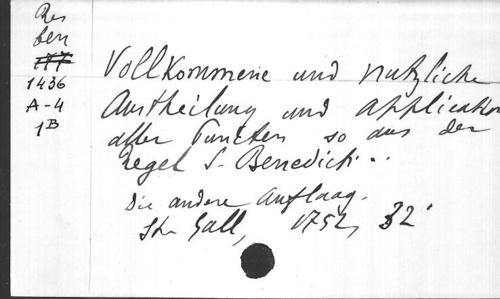 Res
ben
177
1436
A-4
1B
Vollkommene und nutzliche
Austheilung und Application
aller Puncten so aus der
Regel S. Benedicti...
Die andere Auflaag.
Stu Gall, 1752, 32'